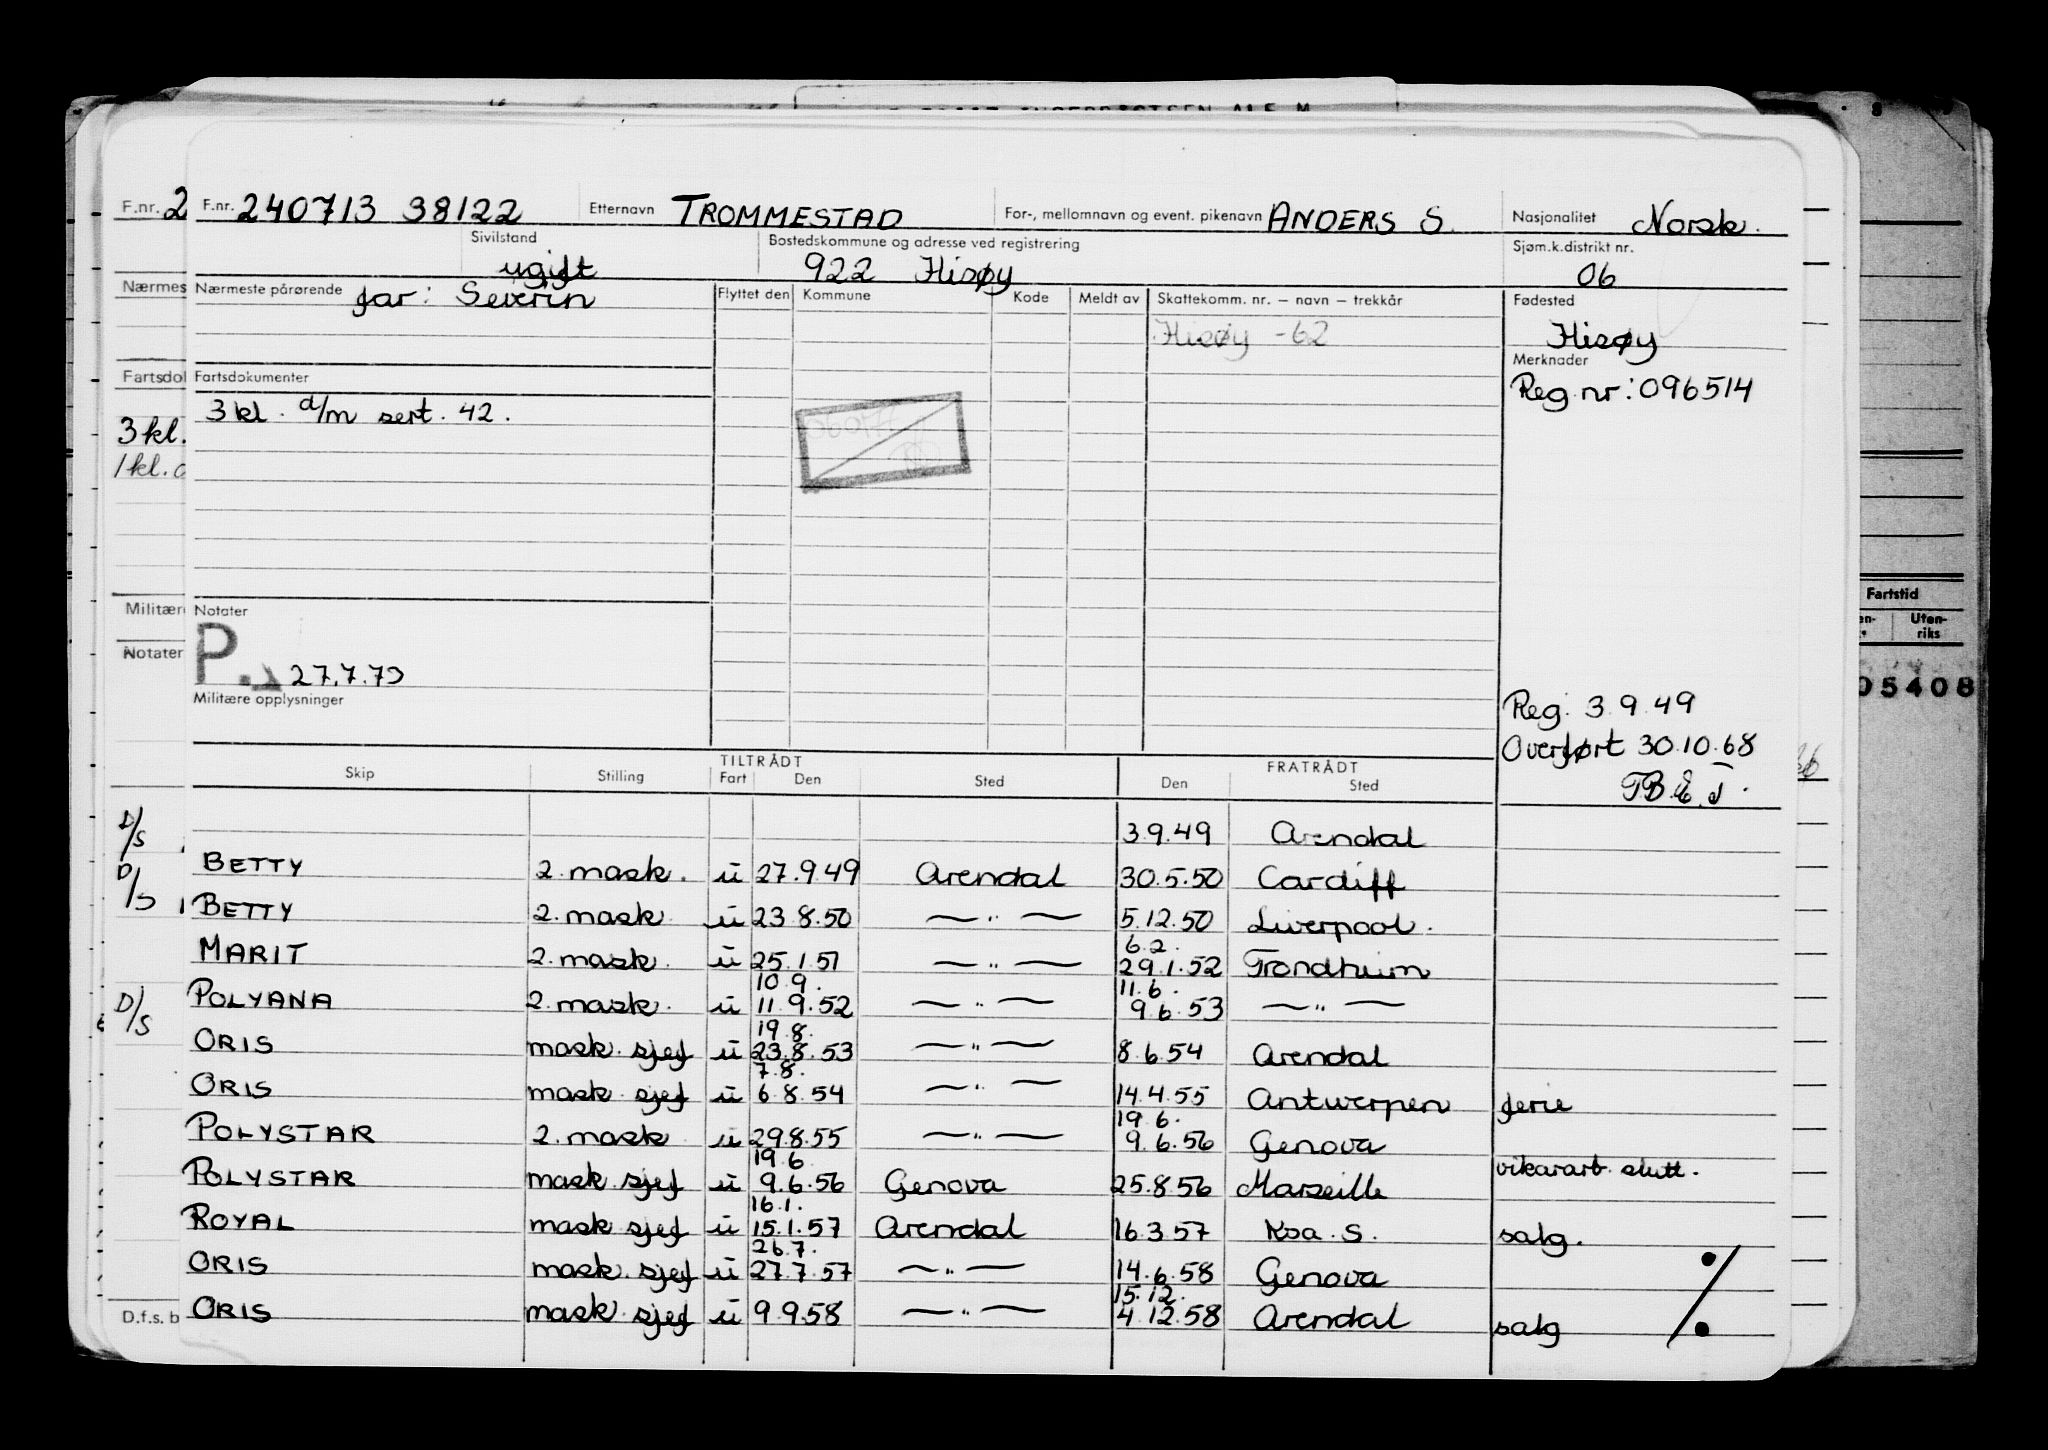 F.nr. 240713 38122 Etternavn TROMMESTAD For-, mellomnavn og event. pikenavn ANDERS S. Nasjonalitet Norsk.
Sivilstand ugift Bostedskommune og adresse ved registrering 922 Hisøy Sjøm.k.distrikt nr. 06
Nærmeste pårørende far: Severin Flyttet den Kommune Kode Meldt av Skattekomm. nr. – navn – trekkår Fødested
Hisøy -62 Hisøy
Merknader
Fartsdokumenter Reg nr: 096514
3 kl. d/m sert. 42.
Notater
P. 27.7.73
Militære opplysninger
Reg: 3.9.49
Overført 30.10.68
TILTRÅDT FRATRÅDT
Skip Stilling Fart Den Sted Den Sted
3.9.49 Arendal
BETTY 2. mask. ū 27.9.49 Arendal 30.5.50 Cardiff
BETTY 2. mask ū 23.8.50 — " — 5.12.50 Liverpool.
6.2.
MARIT 2. mask. ū 25.1.51 — " — 29.1.52 Trondheim
10.9. 11.6.
POLYANA 2. mask. ū 11.9.52 — " — 9.6.53 — " —
19.8.
ORIS mask. sjef ū 23.8.53 — " — 8.6.54 Arendal
7.8.
ORIS mask. sjef ū 6.8.54 — " — 14.4.55 Antwerpen ferie
19.6.
POLYSTAR 2. mask ū 29.8.55 — " — 9.6.56 Genova
19.6. vikararb. slutt.
POLYSTAR mask. sjef ū 9.6.56 Genova 25.8.56 Marseille
16.1.
ROYAL mask. sjef ū 15.1.57 Arendal 16.3.57 Kra. S. salg.
26.7.
ORIS mask. sjef ū 27.7.57 — " — 14.6.58 Genova
15.12.
ORIS mask. sjef ū 9.9.58 — " — 4.12.58 Arendal salg
F.nr. 2
Nærmes
Fartsdol
3 kl.
1 kl.
Militær
Notater
D/S
D/S
D/S
D.f.s. b
Fartstid
Uten-
riks
05408